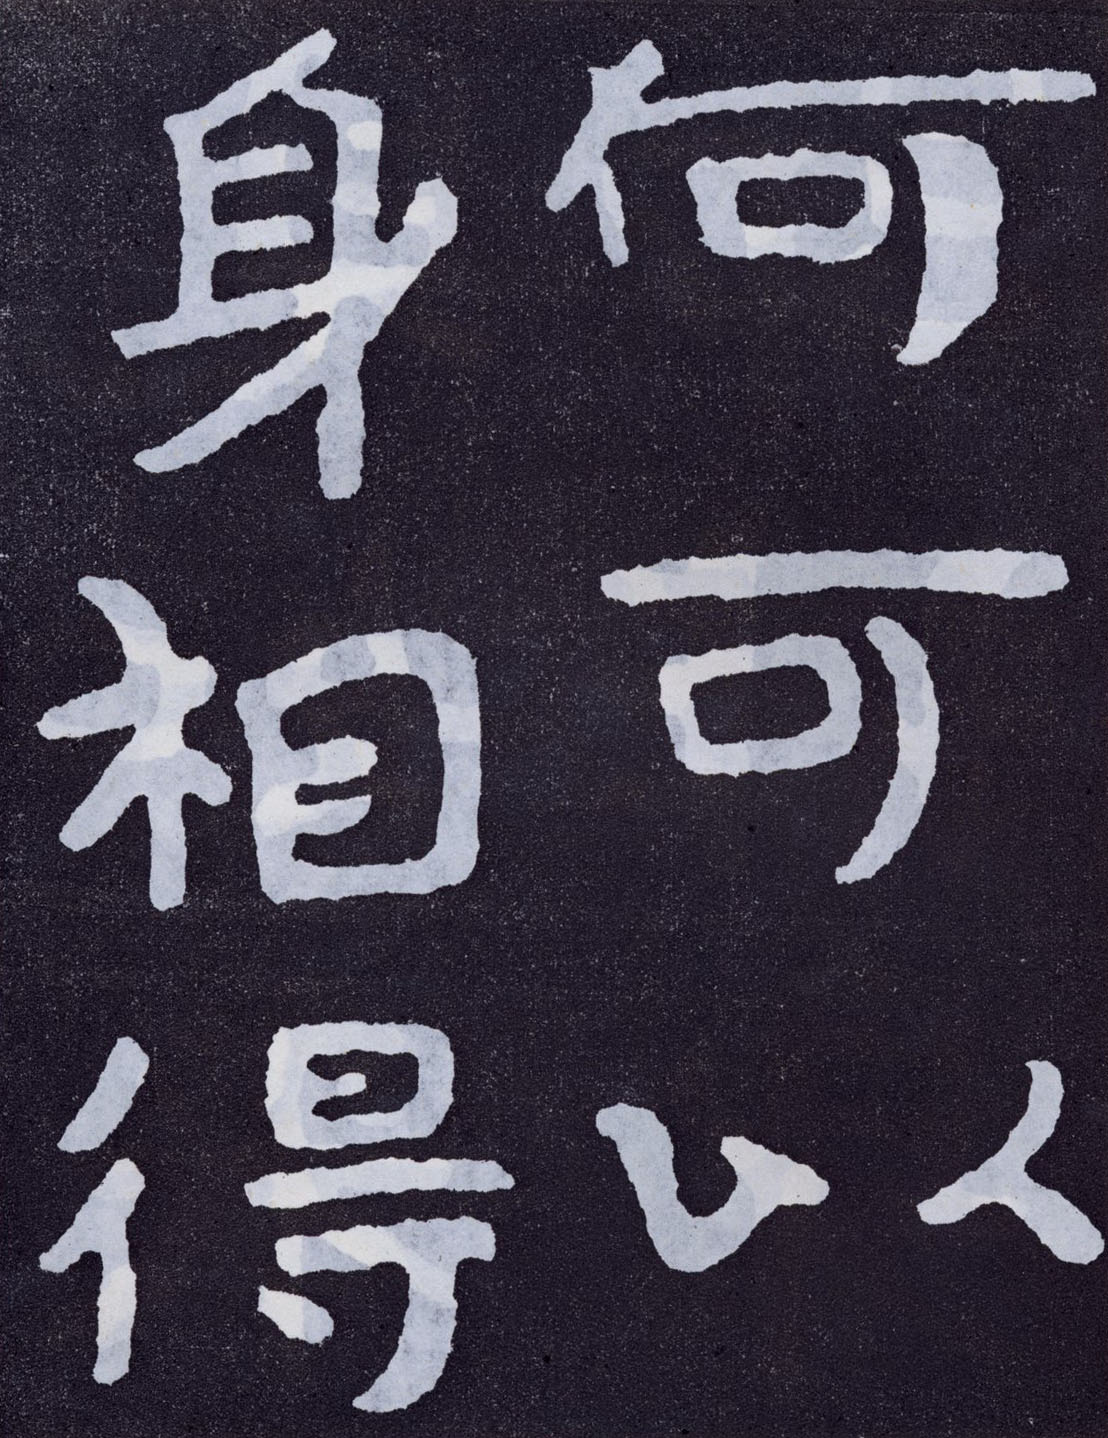 何可以
身相得